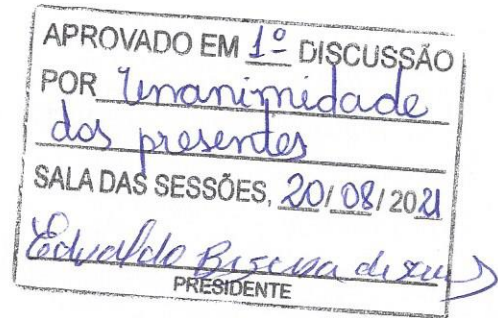 APROVADO EM 1º DISCUSSÃO
POR Unanimidade
dos presentes
SALA DAS SESSÕES, 20/08/2021
Edvaldo
PRESIDENTE